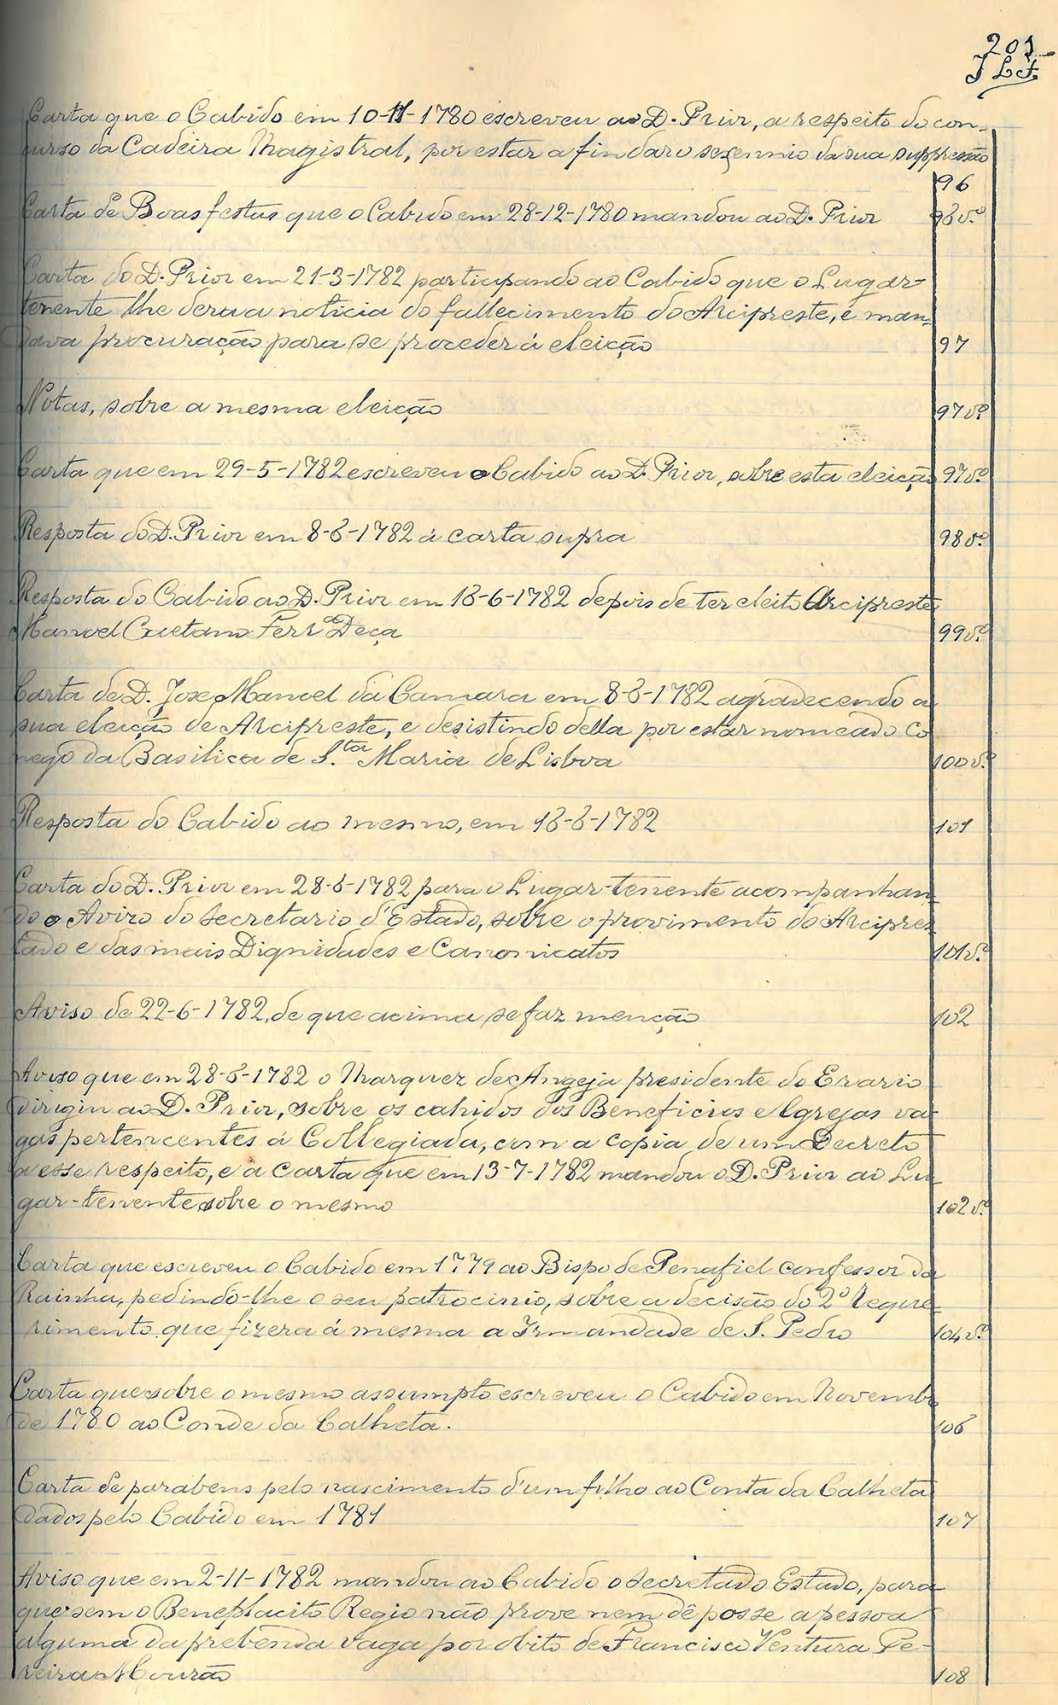 201
Carta que o Cabido em 10-11-1780 escreveu ao D. Prior, a respeito do con-
curso da Cadeira Magistral, por estar a findar o sexennio da sua suppressão
96
Carta de Boas festas que o Cabido em 28-12-1780 mandou ao D. Prior 96vº
Carta do D. Prior em 21-3-1782 participando ao Cabido que o Lugar-
tenente lhe dera a noticia do fallecimento do Arcipreste, e man-
dava procuração para se proceder á eleição 97
Notas, sobre a mesma eleição 97vº
Carta que em 29-5-1782 escreveu o Cabido ao D. Prior, sobre esta eleição 97vº
Resposta do D. Prior em 8-6-1782 á carta supra 98vº
Resposta do Cabido ao D. Prior em 18-6-1782 depois de ter eleito Arcipreste
Manoel Caetano Ferrª Deça 99vº
Carta de D. Jose Manoel da Camara em 8-6-1782 agradecendo a
sua eleição de Arcipreste, e desistindo della por estar nomeado Co
nego da Basilica de S.ta Maria de Lisboa 100vº
Resposta do Cabido ao mesmo, em 18-6-1782 101
Carta do D. Prior em 28-6-1782 para o Lugar-tenente acompanhan
do o Aviso do secretario d'Estado, sobre o provimento do Arcipres
tado e das mais Dignidades e Canonicatos 101vº
Aviso de 22-6-1782, de que acima se faz menção 102
Aviso que em 28-6-1782 o Marquez de Angeja presidente do Erario
dirigiu ao D. Prior, sobre os cahidos dos Beneficios e Igrejas va-
gas pertencentes á Collegiada, com a copia de um Decreto
a esse respeito, e a carta que em 13-7-1782 mandou o D. Prior ao Lu-
gar-tenente sobre o mesmo 102vº
Carta que escreveu o Cabido em 1779 ao Bispo de Penafiel confessor da
Rainha, pedindo-lhe o seu patrocinio, sobre a decisão do 2º reque-
rimento que fizera á mesma a Irmandade de S. Pedro 104vº
Carta que sobre o mesmo assumpto escreveu o Cabido em Novembº
de 1780 ao Conde da Calheta. 106
Carta de parabens pelo nascimento d'um filho ao Conta da Calheta
dados pelo Cabido em 1781 107
Aviso que em 2-11-1782 mandou ao Cabido o secretado Estado, para
que sem o Beneplacito Regio não prove nem dê posse a pessoa
alguma da prebenda vaga por obito de Francisco Ventura Pe-
reira Mourão 108